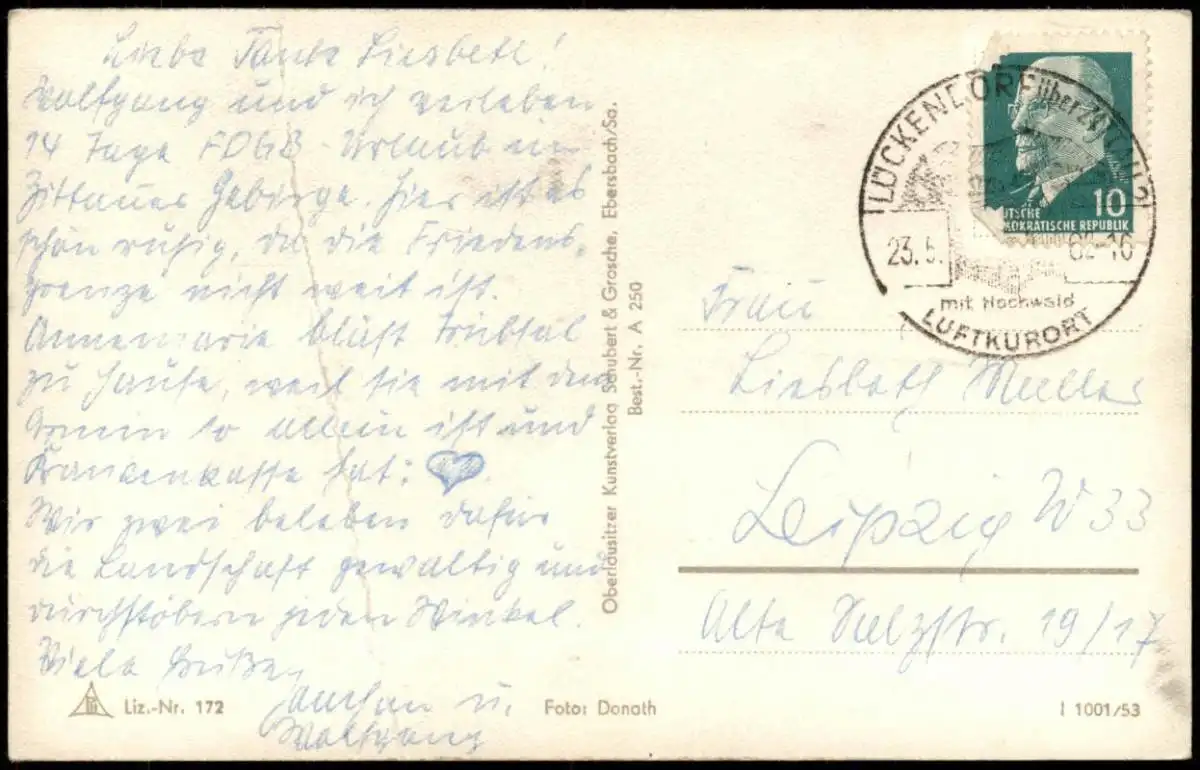 Liebe Tante Liesbeth!
Wolfgang und ich verleben
14 Tage FDGB-Urlaub im
Zittauer Gebirge. Hier ist es
schön ruhig, da die Friedens-
grenze nicht weit ist.
Annemarie bläst Trübsal
zu Hause, weil sie mit dem
so allein ist und
Krankenkasse hat: ♡.
Wir zwei beleben dafür
die Landschaft gewaltig und
durchstöbern jeden Winkel.
Viele Grüße,
Jochen u.
Wolfgang
Liz.-Nr. 172
Foto: Donath
I 1001/53
Oberlausitzer Kunstverlag Schubert & Grosche, Ebersbach/Sa.
Best.-Nr. A 250
LÜCKENDORF über
23. 5. 62-16
mit Hochwald
LUFTKURORT
10
DEUTSCHE
DEMOKRATISCHE REPUBLIK
Frau
Liesbeth Müller
Leipzig W 33
Alte Salzstr. 19/17